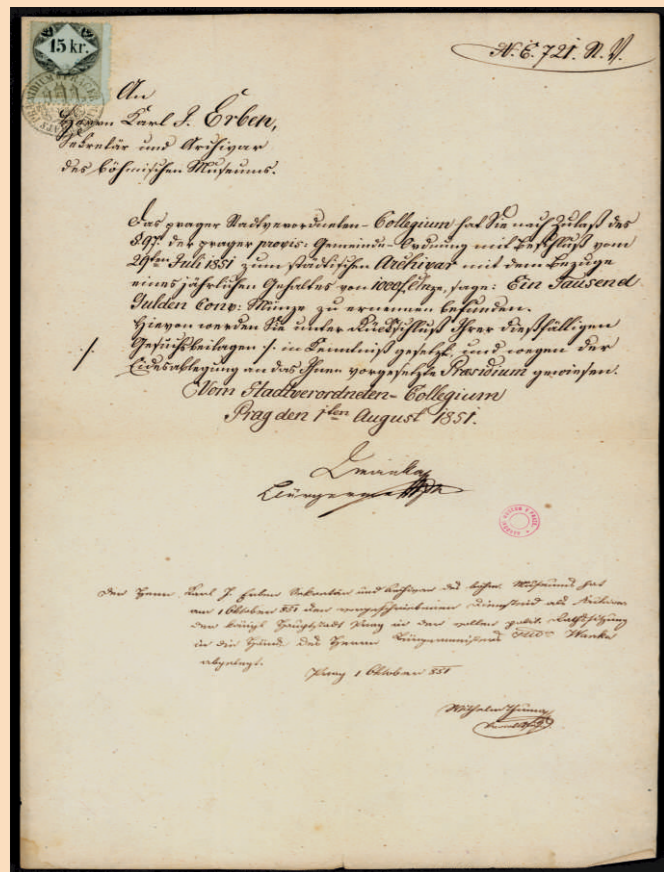 15 kr.
N. E. 721. St. V.
An
Herrn Karl J. Erben,
Sekretär und Archivar
des böhmischen Museums.
Das prager Stadtverordneten-Collegium hat Sie nach Zulaß des
§ 97. der prager provis: Gemeinde-Ordnung mit Beschluß vom
29ten Juli 1851 zum städtischen Archivar mit dem Bezuge
eines jährlichen Gehaltes von 1000 f. Mze, sage: Ein Tausend
Gulden Conv: Münze zu ernennen befunden.
Hievon werden Sie unter Rückschluß Ihrer dießfälligen
Gesuchsbeilagen ·/. in Kenntniß gesetzt, und wegen der
·/.
Eidesablegung an das Ihnen vorgesetzte Præsidium gewiesen.
Vom Stadtverordneten-Collegium
Prag den 1ten August 1851.
Der Herr Karl J. Erben Sekretär und Archivar des böhm. Museums hat
am 1 Oktober 851 den vorgeschriebenen Diensteid als Archivar
der königl Hauptstadt Prag in der vollen polit. Rathssitzung
in die Hände des Herrn Bürgermeisters Wanka
abgelegt.
Prag 1 Oktober 851
Wilhelm